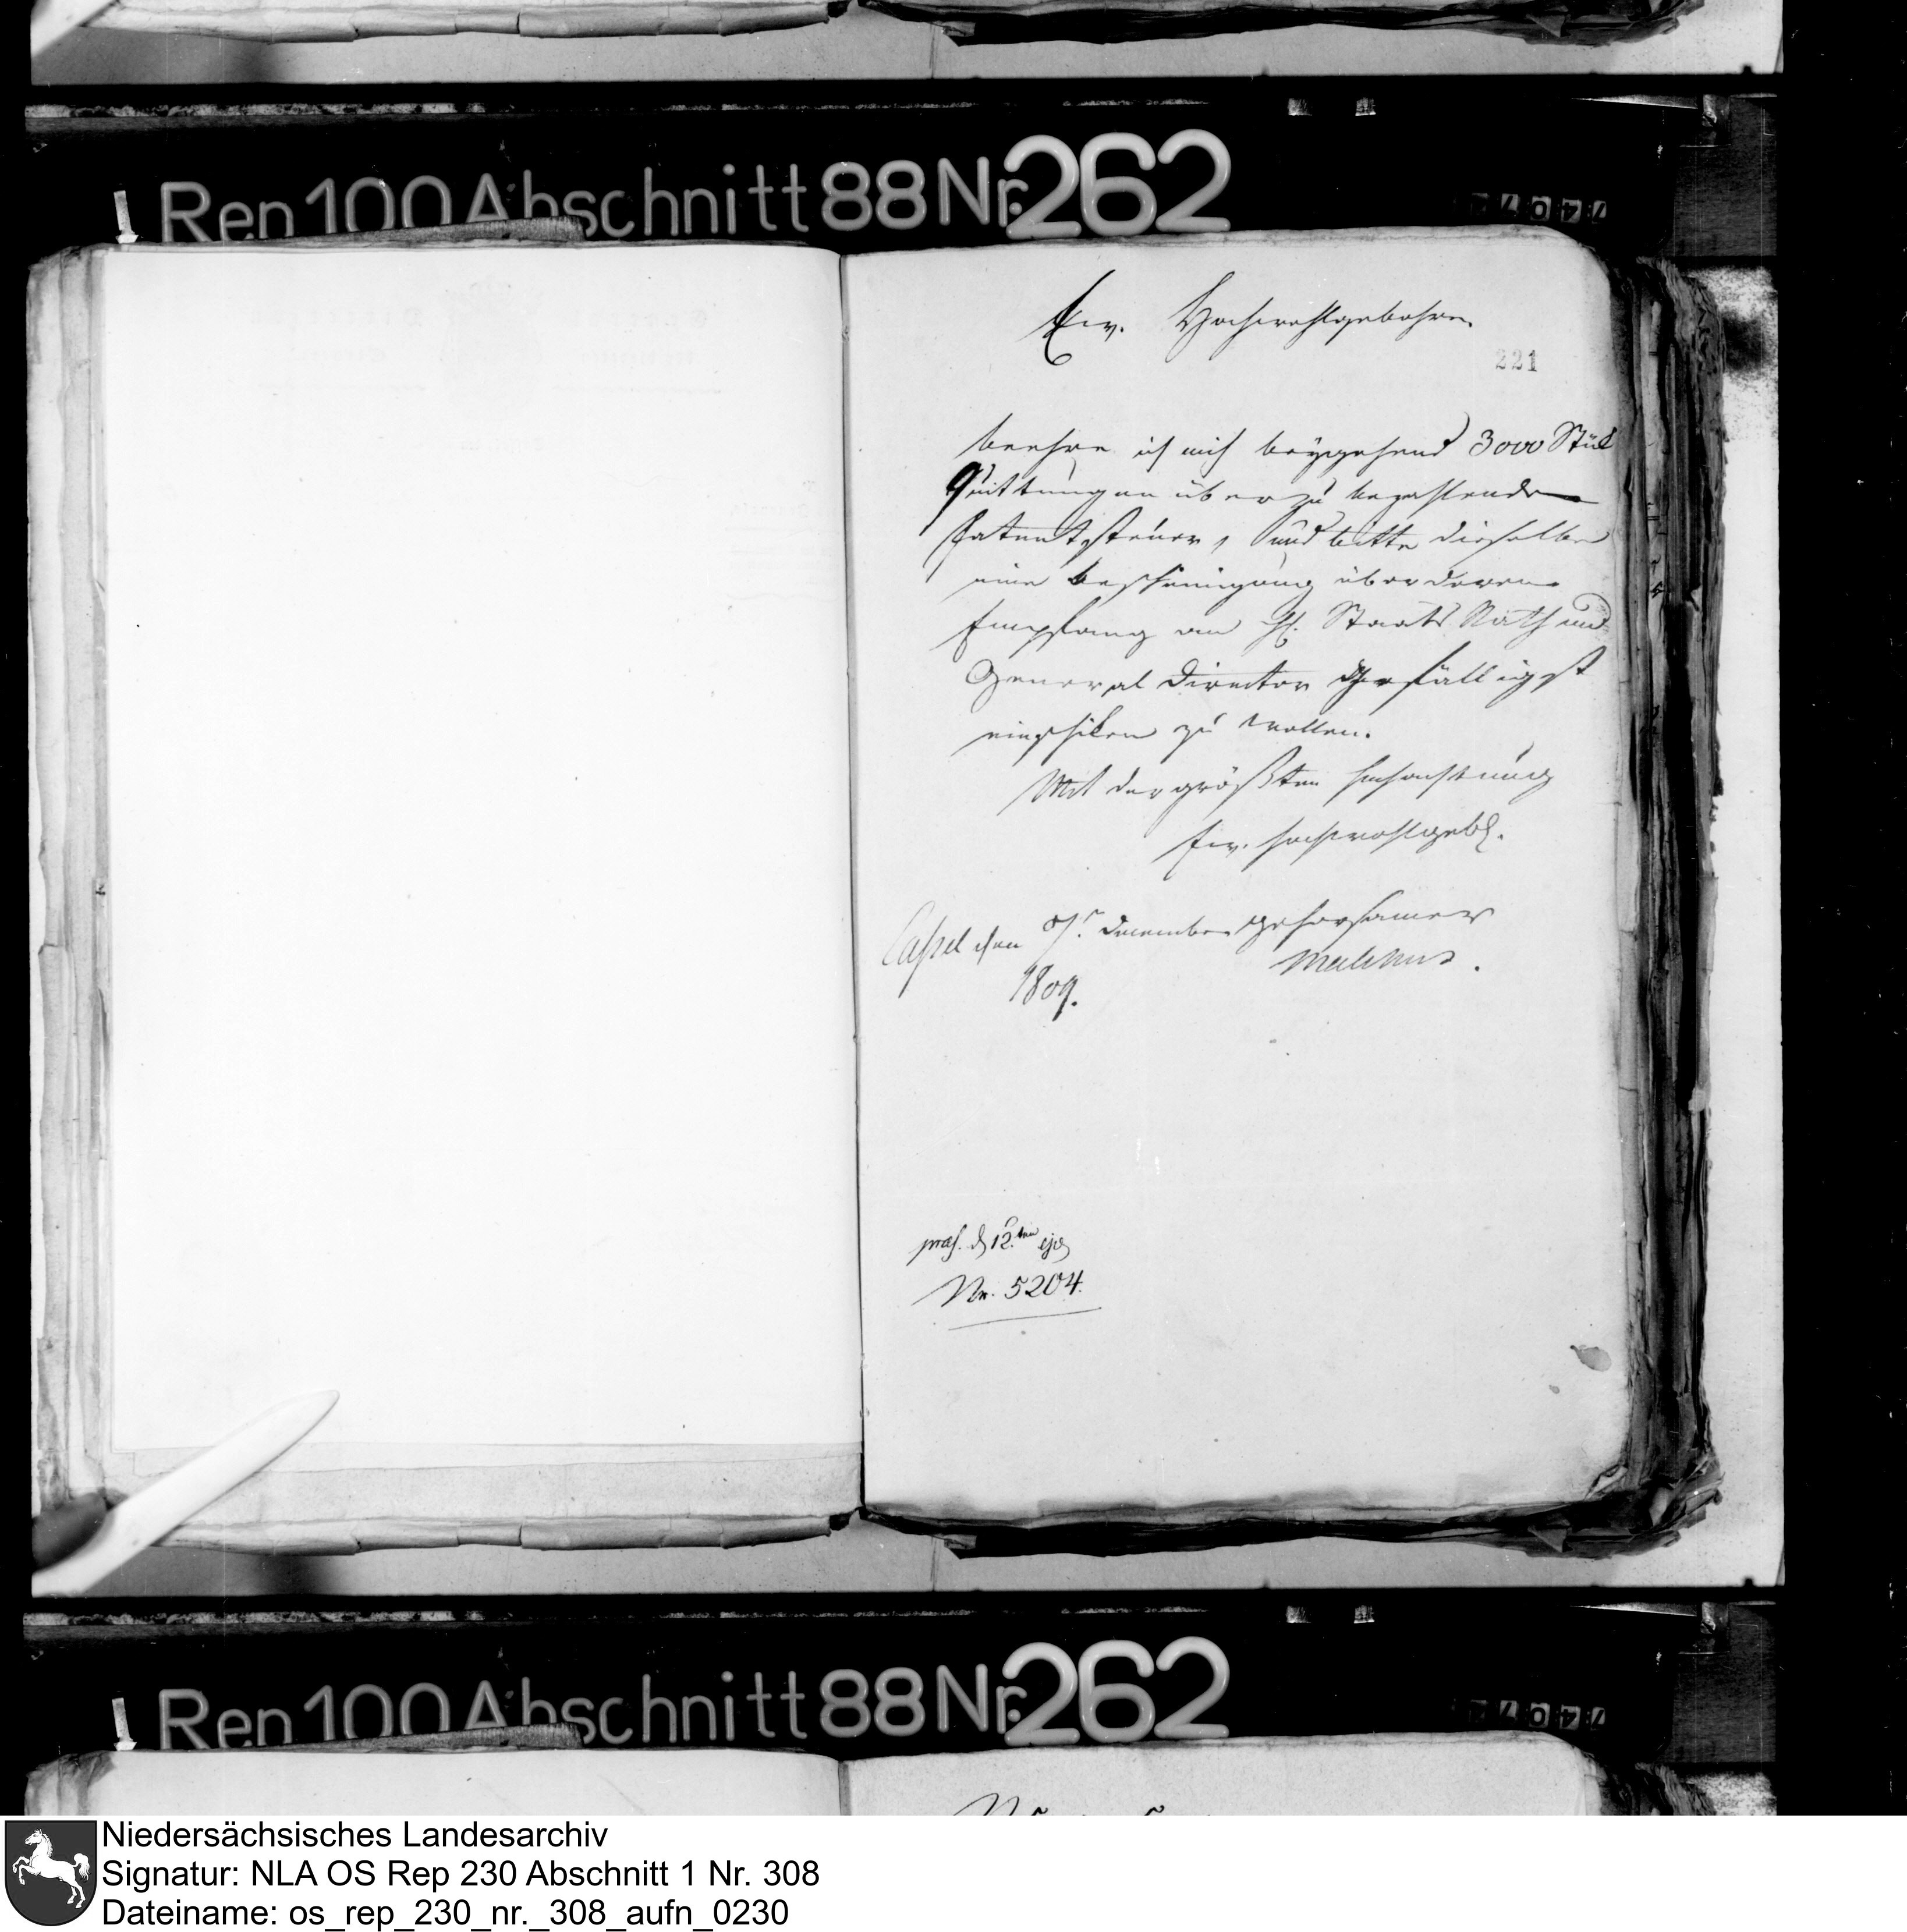 Rep 100 Abschnitt 88 Nr. 262
Ew. Hochwohlgebohren
221
beehre ich mich beygehend 3000 Stük
Quittungen über zu bezahlende
Patentsteuer, und bitte dieselben
eine Bescheinigung über deren
Empfang an H. Staats Rath und
General Director gefälligst
einschiken zu wollen.
Mit der größten Hochachtung
Ew. Hochwohlgeb.
Cassel den December gehorsamer
1809. Malchus.
praes. d 12.ten ejd
Nr. 5204.
Rep 100 Abschnitt 88 Nr. 262
Niedersächsisches Landesarchiv
Signatur: NLA OS Rep 230 Abschnitt 1 Nr. 308
Dateiname: os_rep_230_nr._308_aufn_0230